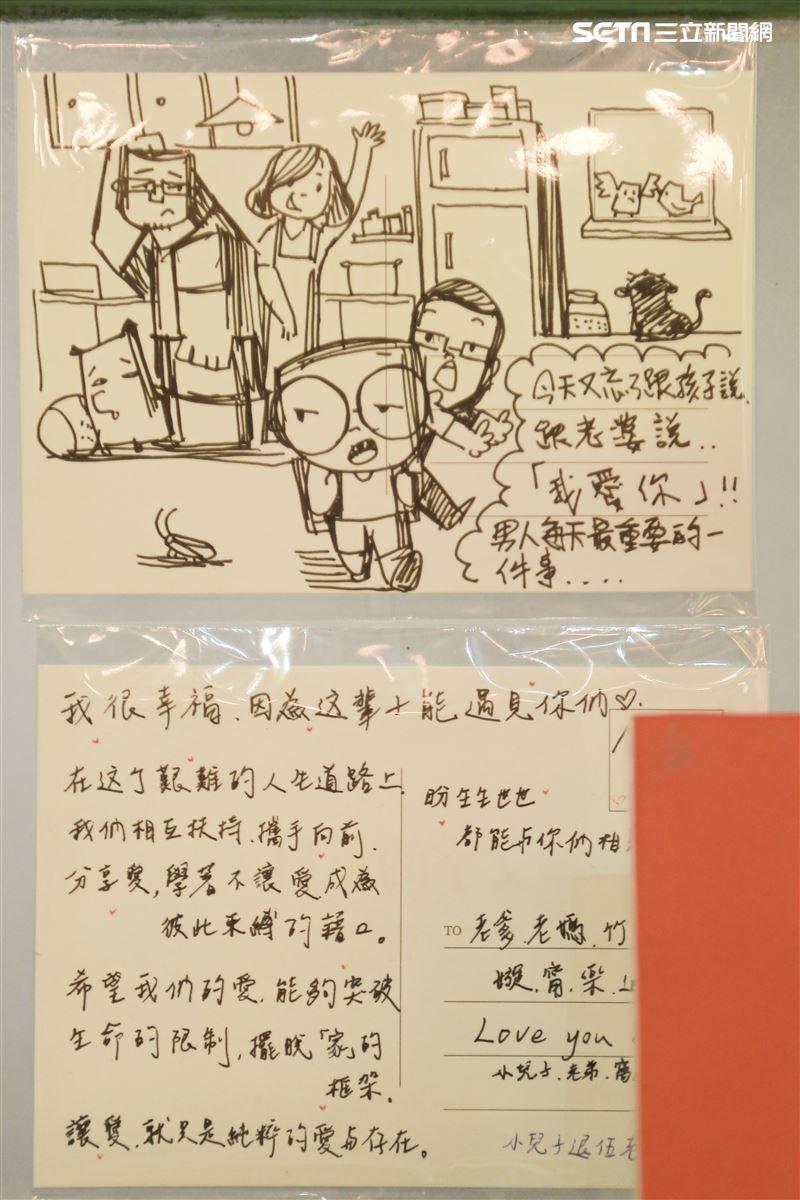 SETN三立新聞網
今天又忘了跟孩子說、
跟老婆說..
「我愛你」!!
男人每天最重要的一
件事....
我很幸福、因為这輩子能遇見你們♡.
在这个艱難的人生道路上、
我們相互扶持、攜手向前、
分享愛,學著不讓愛成為
彼此束縛的藉口。
希望我們的愛、能夠突破
生命的限制,擺脫「家」的
框架、
讓愛、就只是純粹的愛与存在。
盼生生世世
都能与你們相
TO 老爹、老媽、竹
嫙、甯、樂、
Love you
小兒子、老弟、
小兒子退伍